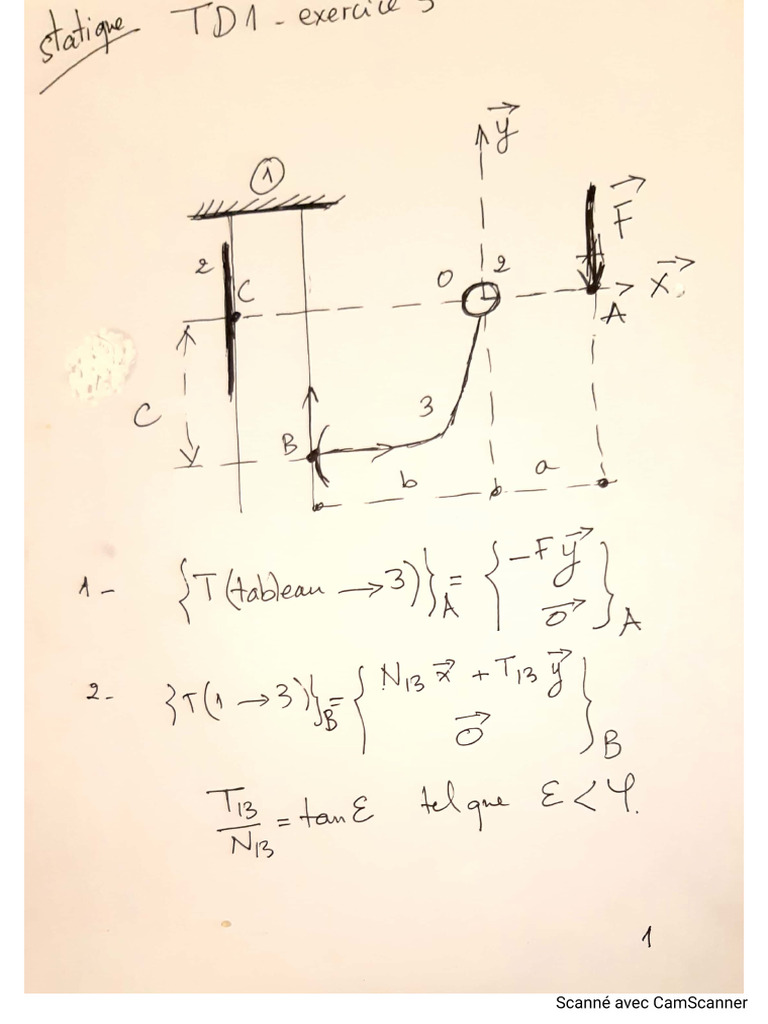 statique TD1 - exercice 3
y
1
F
2
C
O
2
x
A
C
3
B
b
a
1 - {T(tableau → 3)}A = {-F y 0}A
2 - {T(1 → 3)}B = {N13 x + T13 y 0}B
T13/N13 = tan ε tel que ε < φ.
1
Scanné avec CamScanner